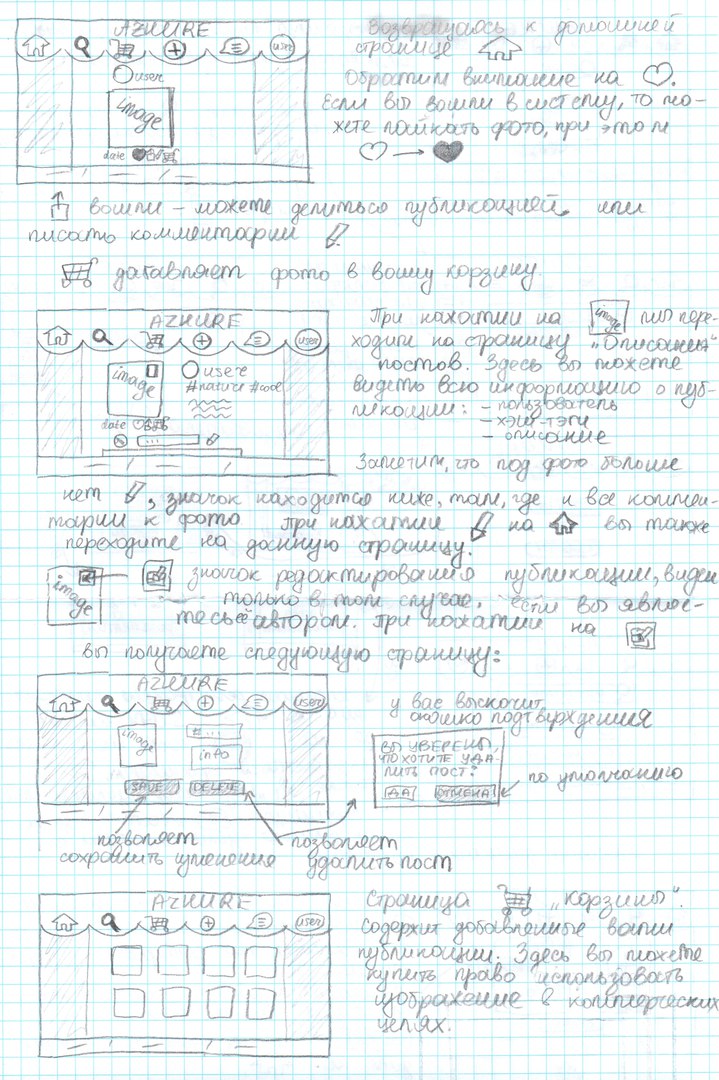 AZHURE
user
user
image
date
Возвращаясь к домашней
странице
Обратим внимание на
Если вы вошли в систему, то мо-
жете лайкать фото, при этом
вошли – можете делиться публикацией или
писать комментарии
дабавляет фото в вашу корзину.
AZHURE
user
image
usere
#nature #cool
date
...
При нажатии на image мы пере-
ходим на страницу „Описания"
постов. Здесь вы можете
видеть всю информацию о пуб-
ликации: – пользователь
– хэш-тэги
– описание
Заметим, что под фото больше
нет , значок находится ниже, там, где и все коммен-
тарии к фото При нажатии на вы также
переходите на данную страницу.
image
значок редактирования публикации, виден
только в том случае, если вы являе-
тесь её автором. При нажатии на
вы получаете следующую страницу:
AZHURE
user
image
#...
info
SAVE
DELETE
у вас выскочит
окошко подтверждения
ВЫ УВЕРЕНЫ,
ЧТО ХОТИТЕ УДА-
ЛИТЬ ПОСТ?
ДА
ОТМЕНА
по умолчанию
позволяет
сохранить изменения
позволяет
удалить пост
AZHURE
user
Страница „Корзины".
Содержит добавленные вами
публикации. Здесь вы можете
купить право использовать
изображение в коммерческих
целях.